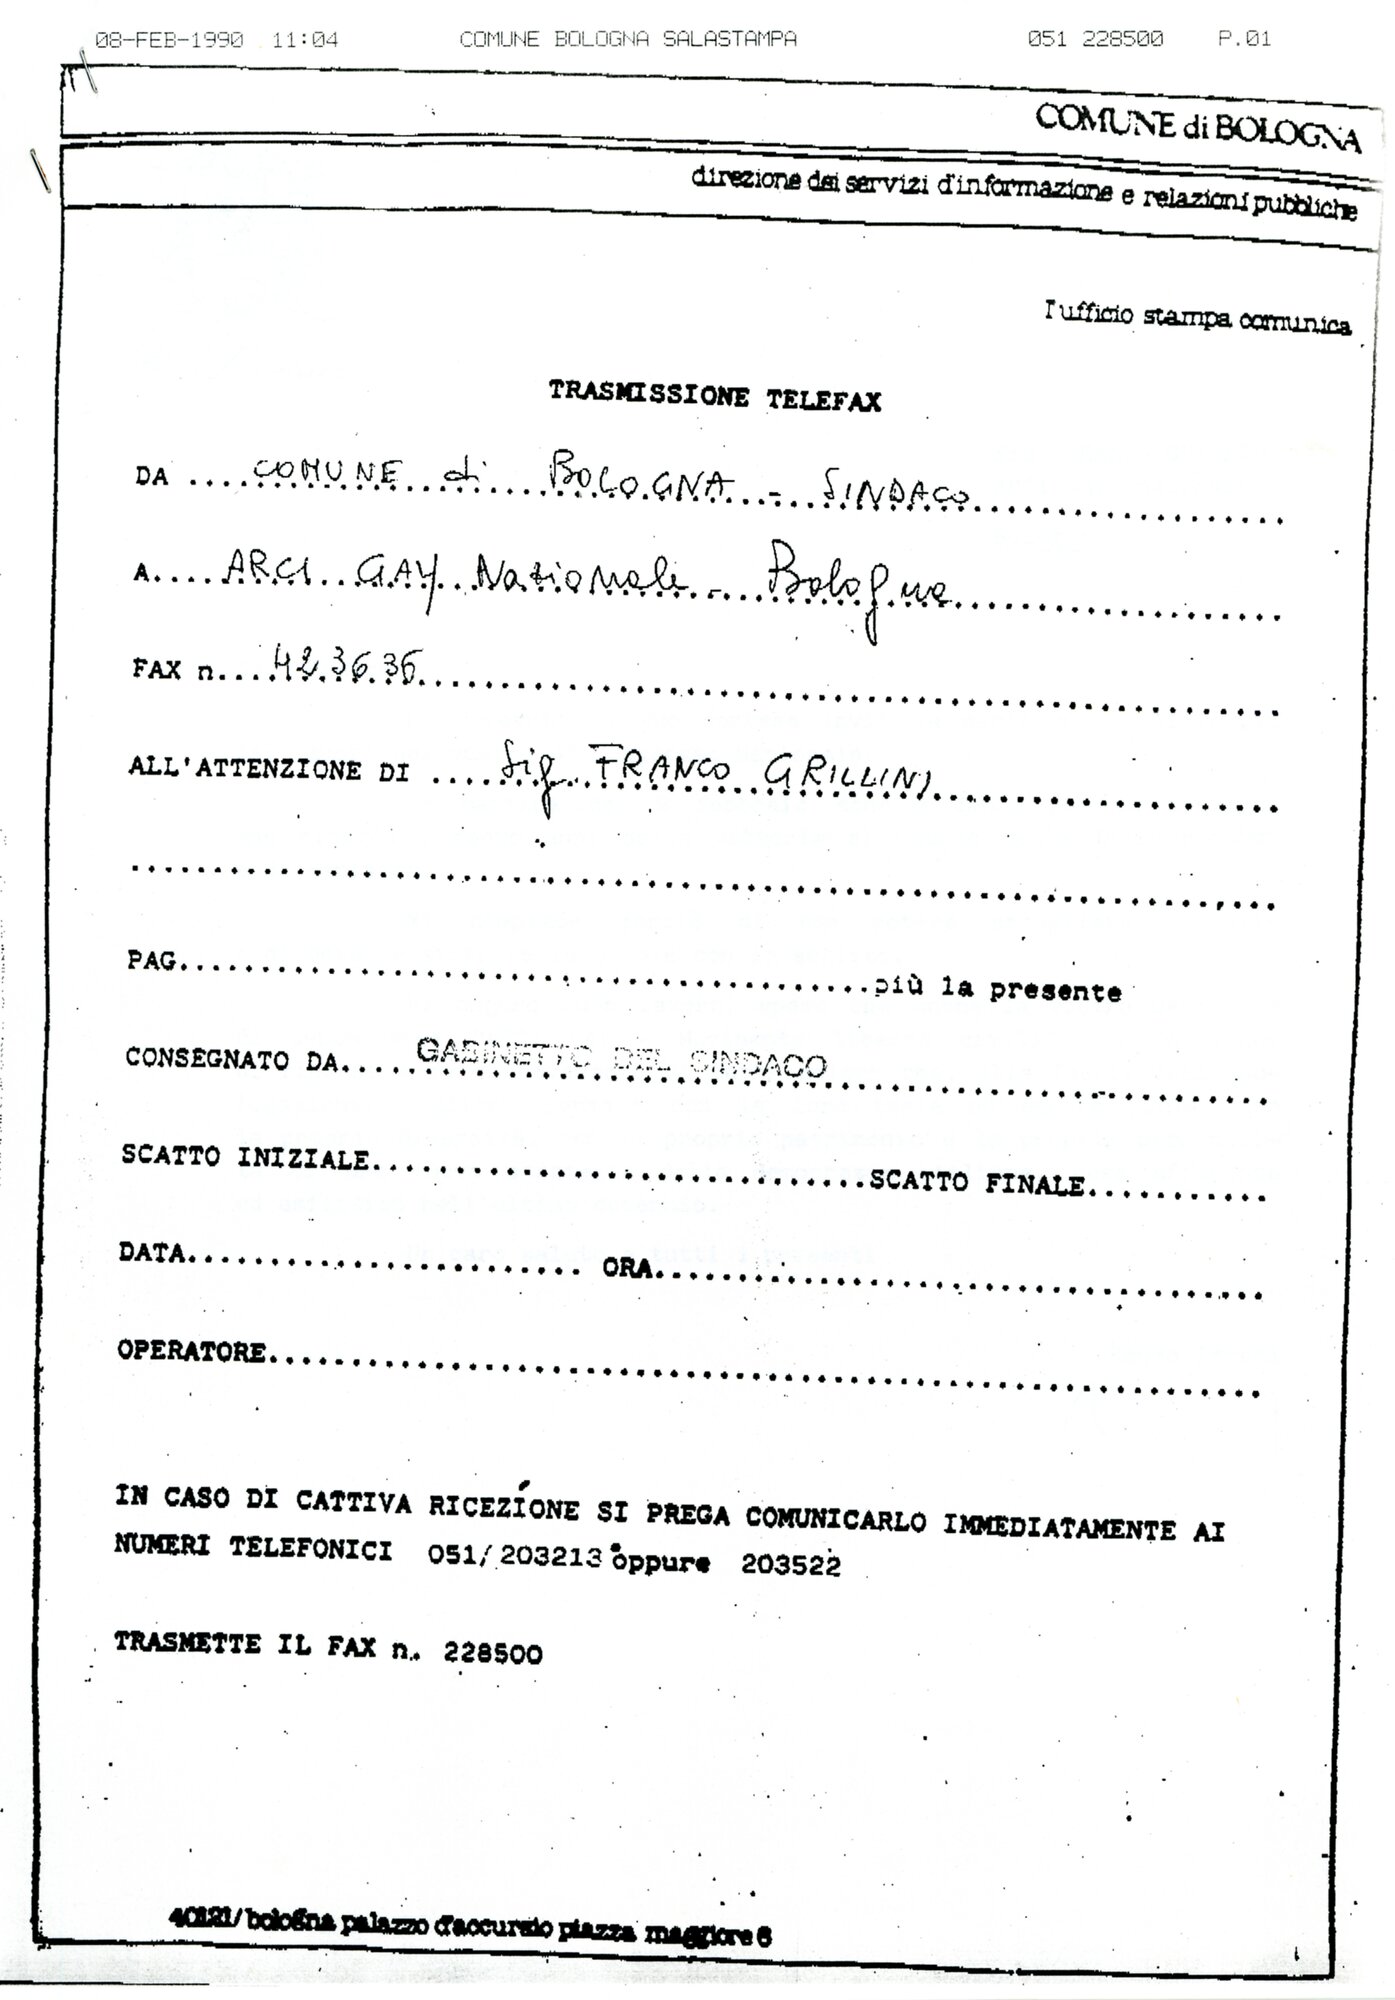 08-FEB-1990 11:04 COMUNE BOLOGNA SALASTAMPA 051 228500 P.01
COMUNE di BOLOGNA
direzione dei servizi d'informazione e relazioni pubbliche
l'ufficio stampa comunica
TRASMISSIONE TELEFAX
DA .... COMUNE di BOLOGNA - SINDACO
A.... ARCI GAY Nazionale - Bologna
FAX n.... 423636
ALL'ATTENZIONE DI .... Sig FRANCO GRILLINI
PAG........ più la presente
CONSEGNATO DA..... GABINETTO DEL SINDACO
SCATTO INIZIALE........SCATTO FINALE........
DATA........ ORA........
OPERATORE........
IN CASO DI CATTIVA RICEZIONE SI PREGA COMUNICARLO IMMEDIATAMENTE AI
NUMERI TELEFONICI 051/203213 oppure 203522
TRASMETTE IL FAX n. 228500
40121/bologna palazzo d'accursio piazza maggiore 6